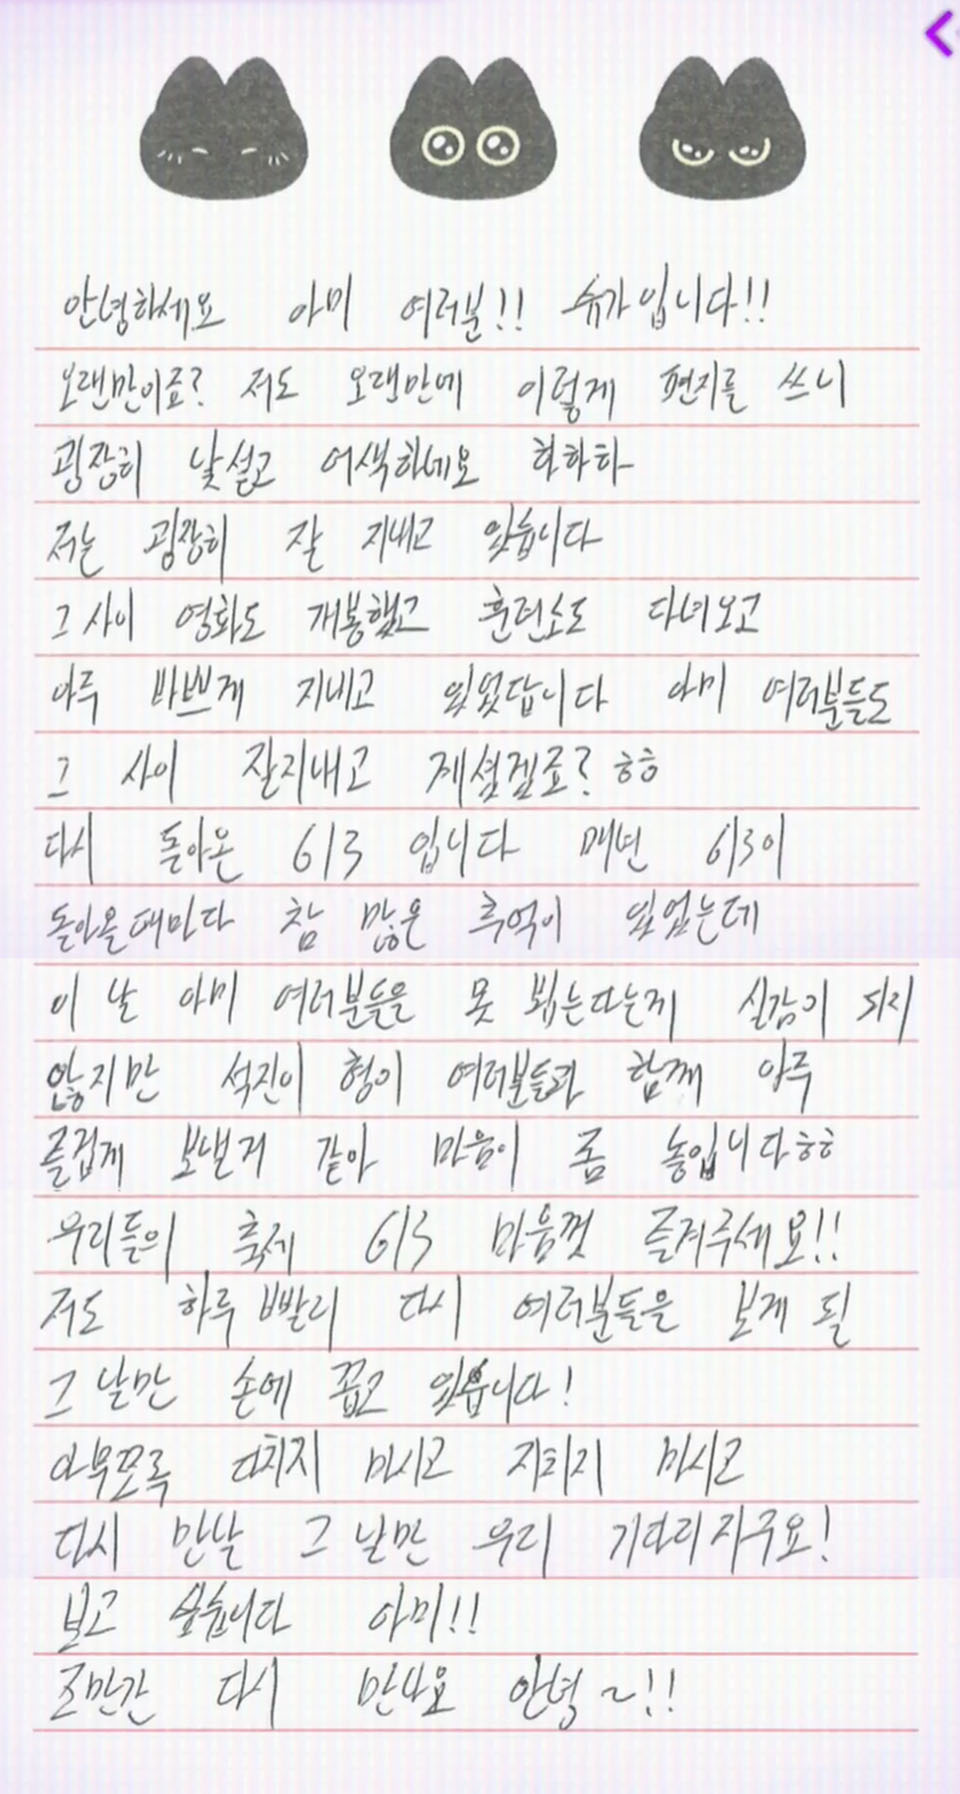 안녕하세요 아미 여러분!! 슈가입니다!!
오랜만이죠? 저도 오랜만에 이렇게 편지를 쓰니
굉장히 낯설고 어색하네요 하하하
저는 굉장히 잘 지내고 있습니다
그 사이 영화도 개봉했고 훈련소도 다녀오고
아주 바쁘게 지내고 있었답니다 아미 여러분들도
그 사이 잘지내고 계셨겠죠? ㅎㅎ
다시 돌아온 613 입니다 매년 613이
돌아올때마다 참 많은 추억이 있었는데
이 날 아미 여러분들을 못 뵙는다는게 실감이 되지
않지만 석진이 형이 여러분들과 함께 아주
즐겁게 보낼거 같아 마음이 좀 놓입니다ㅎㅎ
우리들의 축제 613 마음껏 즐겨주세요!!
저도 하루 빨리 다시 여러분들을 보게 될
그 날만 손에 꼽고 있습니다!
아무쪼록 다치지 마시고 지치지 마시고
다시 만날 그 날만 우리 기다리자구요!
보고 싶습니다 아미!!
조만간 다시 만나요 안녕~!!